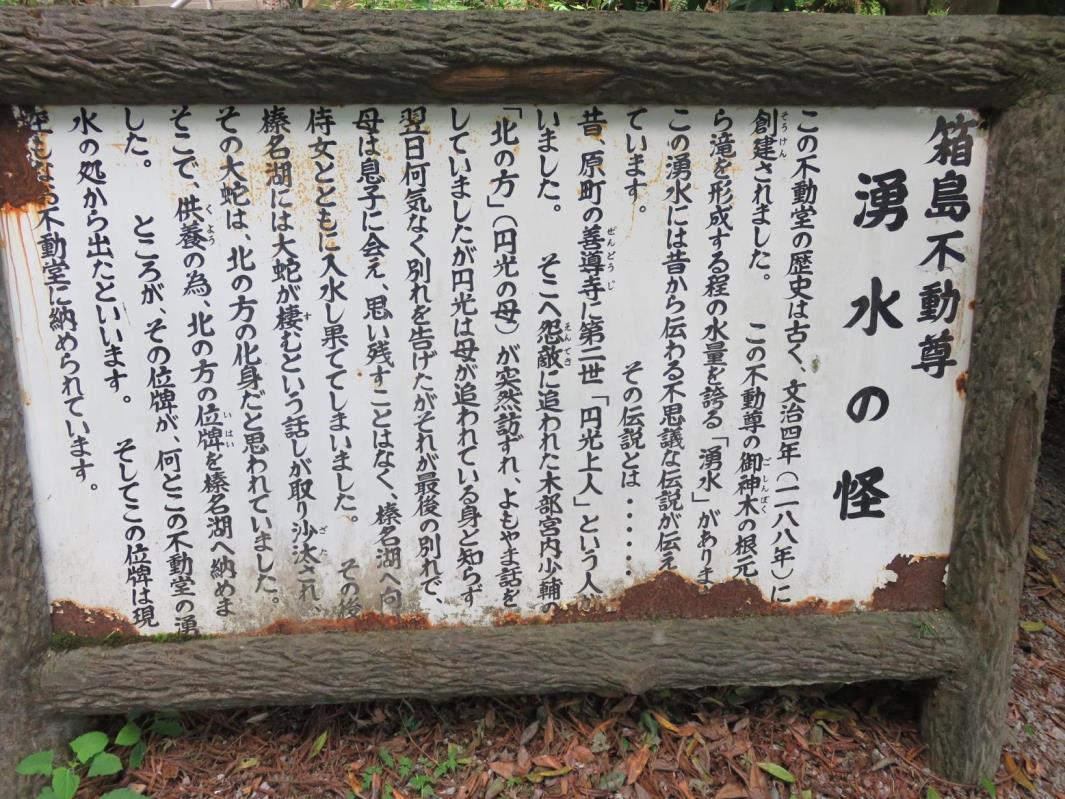 箱島不動尊
湧水の怪
この不動堂の歴史は古く、文治四年（一一八八年）に
創建されました。　この不動尊の御神木の根元
ら滝を形成する程の水量を誇る「湧水」がありま
この湧水には昔から伝わる不思議な伝説が伝え
ています。　その伝説とは・・・・・
昔、原町の善導寺に第二世「円光上人」という人
いました。　そこへ怨敵に追われた木部宮内少輔の
「北の方」（円光の母）が突然訪ずれ、よもやま話を
していましたが円光は母が追われている身と知らず
翌日何気なく別れを告げたがそれが最後の別れで、
母は息子に会え、思い残すことはなく、榛名湖へ向
侍女とともに入水し果ててしまいました。　その後
榛名湖には大蛇が棲むという話しが取り沙汰され、
その大蛇は、北の方の化身だと思われていました。
そこで、供養の為、北の方の位牌を榛名湖へ納めま
した。　ところが、その位牌が、何とこの不動堂の湧
水の処から出たといいます。　そしてこの位牌は現
在もなお不動堂に納められています。